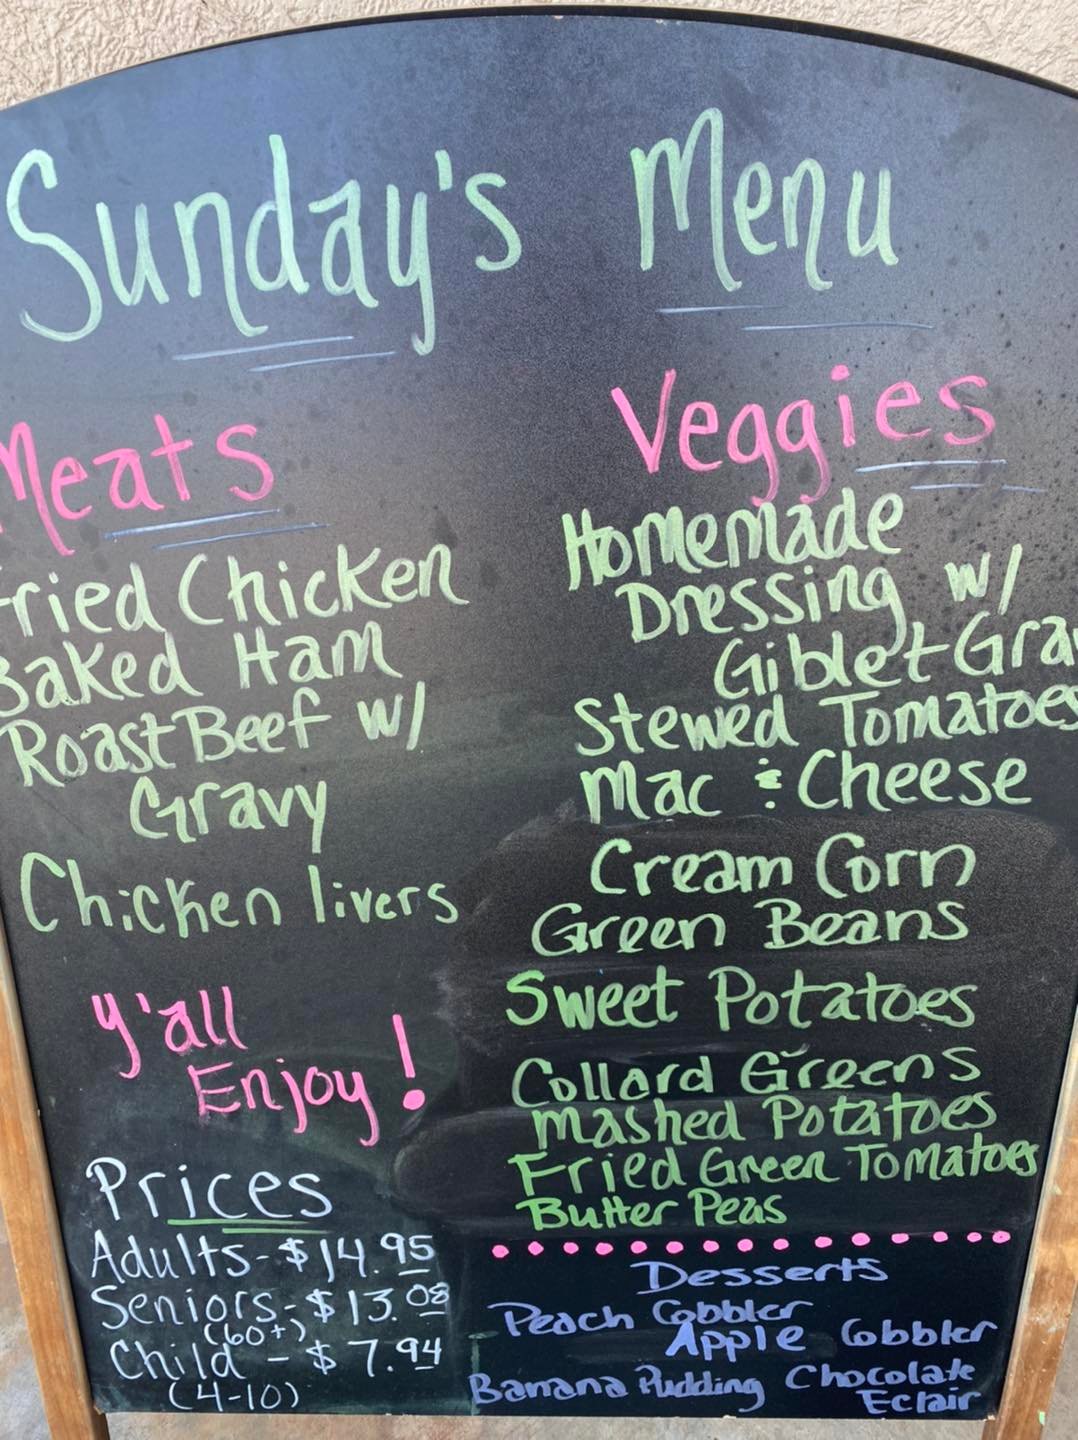 Sunday's Menu
Meats
Fried Chicken
Baked Ham
Roast Beef w/
Gravy
Chicken livers
Y'all
Enjoy!
Prices
Adults - $14.95
Seniors - $13.08
(60+)
Child - $7.94
(4-10)
Veggies
Homemade
Dressing w/
Giblet Gra
Stewed Tomatoes
Mac & Cheese
Cream Corn
Green Beans
Sweet Potatoes
Collard Greens
Mashed Potatoes
Fried Green Tomatoes
Butter Peas
Desserts
Peach Cobbler
Apple Cobbler
Banana Pudding Chocolate
Eclair